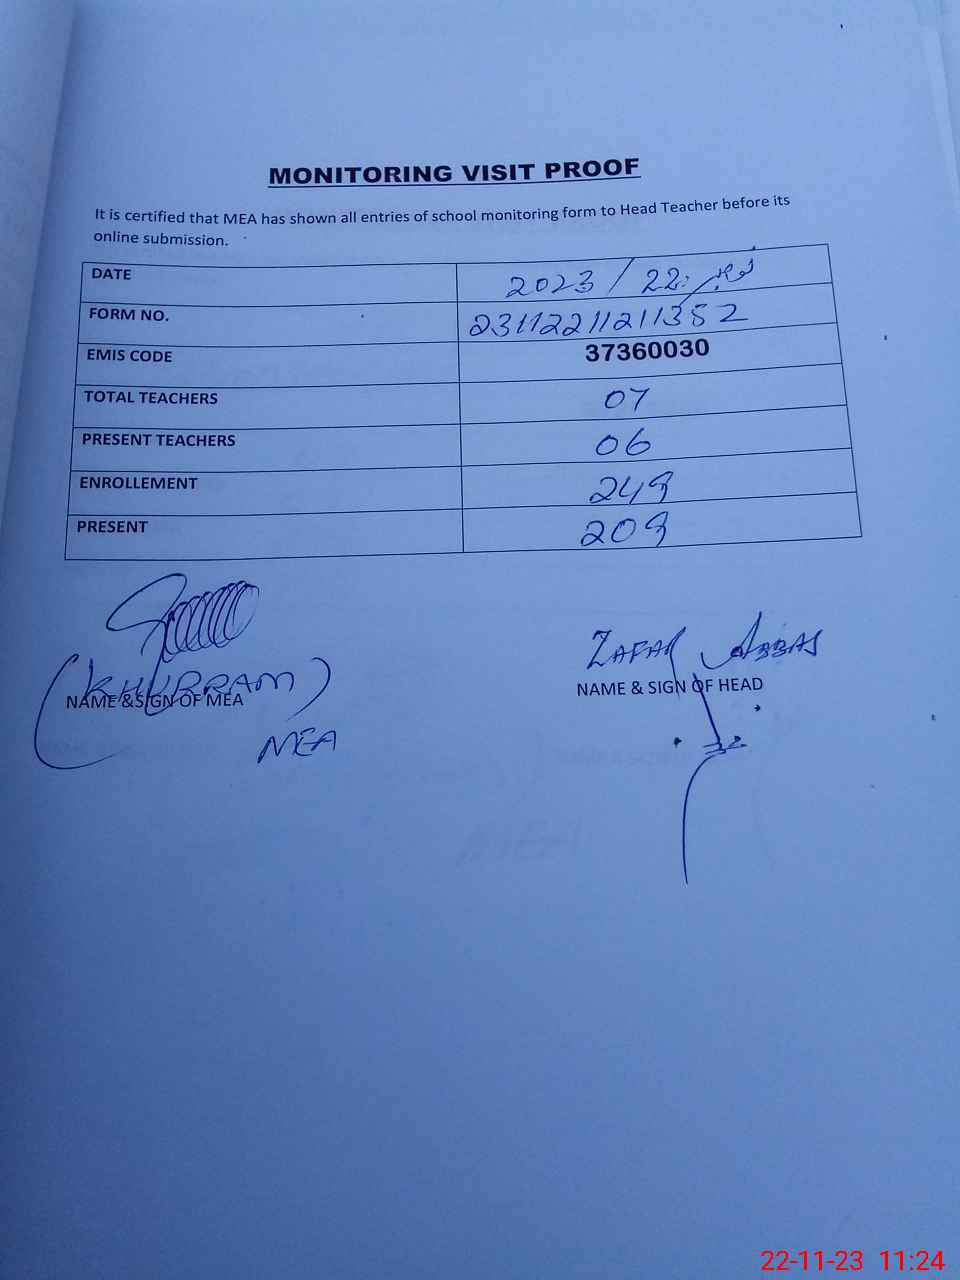 MONITORING VISIT PROOF
It is certified that MEA has shown all entries of school monitoring form to Head Teacher before its
online submission.
DATE 2023 / 22 نومبر
FORM NO. 23112211211352
EMIS CODE 37360030
TOTAL TEACHERS 07
PRESENT TEACHERS 06
ENROLLEMENT 249
PRESENT 209
(KHURRAM)
NAME &SIGN OF MEA
MEA
ZAFAR ABBAS
NAME & SIGN OF HEAD
22-11-23 11:24